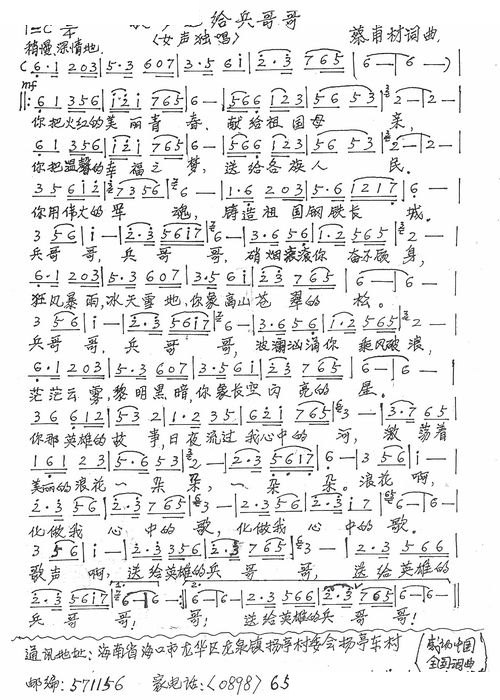 1=C 2/4 给兵哥哥
稍慢 深情地 (女声独唱) 蔡甫材词曲
(6·1 203|5·3 607|3·5 6i|2·3 765|6—|6—)
mf
||:6 1 356|i2i 765|6—|566 123|56 53|2—|2—|
你把火红的美丽青春,献给祖国母亲,
61 356|i2i 765|6—|566 123|56 53|2—|2—|
你把温馨的幸福之梦,送给各族人民。
3 56 i2|7356|6—|1·6 203|5·6 1217|6—|
你用伟大的军魂,铸造祖国钢铁长城。
3 56|i—|2·3 5617|6—|3·6 56|1·2 565|2—|
兵哥哥,兵哥哥,硝烟滚滚你奋不顾身,
6·1 203|5·3 607|3·5 6i|23 765|6—|6—|
狂风暴雨,冰天雪地,你象高山苍翠的松。
3 56|i—|2·3 5617|6—|3·6 56|1·2 565|2—|
兵哥哥,兵哥哥,波澜汹涌你乘风破浪,
6·1 203|5·3 607|3·5 6i|23 765|6—|6—|
茫茫云雾,黎明黑暗,你象长空闪亮的星。
36 612|53 2|1·2 35|62i 765|3—|3·7 65|
你那英雄的故事,日夜流过我心中的河,激荡着
161 23|5·6 53|2—|2·3 5617|6—|3 56|i—|
美丽的浪花一朵朵,一朵朵。浪花啊,
2·3 56|2·3 765|3—|2·3 56|2·3 i7|6—|6—|
化做我心中的歌,化做我心中的歌。
3 56|i—|2·3 356|2·3 765|3—|2·3 566|
歌声啊,送给英雄的兵哥哥,送给英雄的
2·3 5617|6—|6—:||6—|6—|2·3 356|2·3 765|6—|6—||
兵哥哥;哥;送给英雄的兵哥哥!
通讯地址:海南省海口市龙华区龙泉镇杨亭村委会杨亭东村
感动中国
全国词曲
邮编:571156 家电话:(0898)65